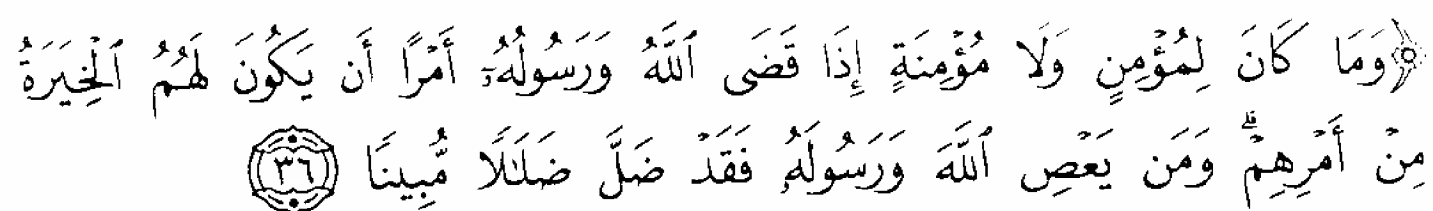 ۞وَمَا كَانَ لِمُؤْمِنٍ وَلَا مُؤْمِنَةٍ إِذَا قَضَى ٱللَّهُ وَرَسُولُهُۥٓ أَمْرًا أَن يَكُونَ لَهُمُ ٱلْخِيَرَةُ
مِنْ أَمْرِهِمْۗ وَمَن يَعْصِ ٱللَّهَ وَرَسُولَهُۥ فَقَدْ ضَلَّ ضَلَٰلًا مُّبِينًا ۝٣٦